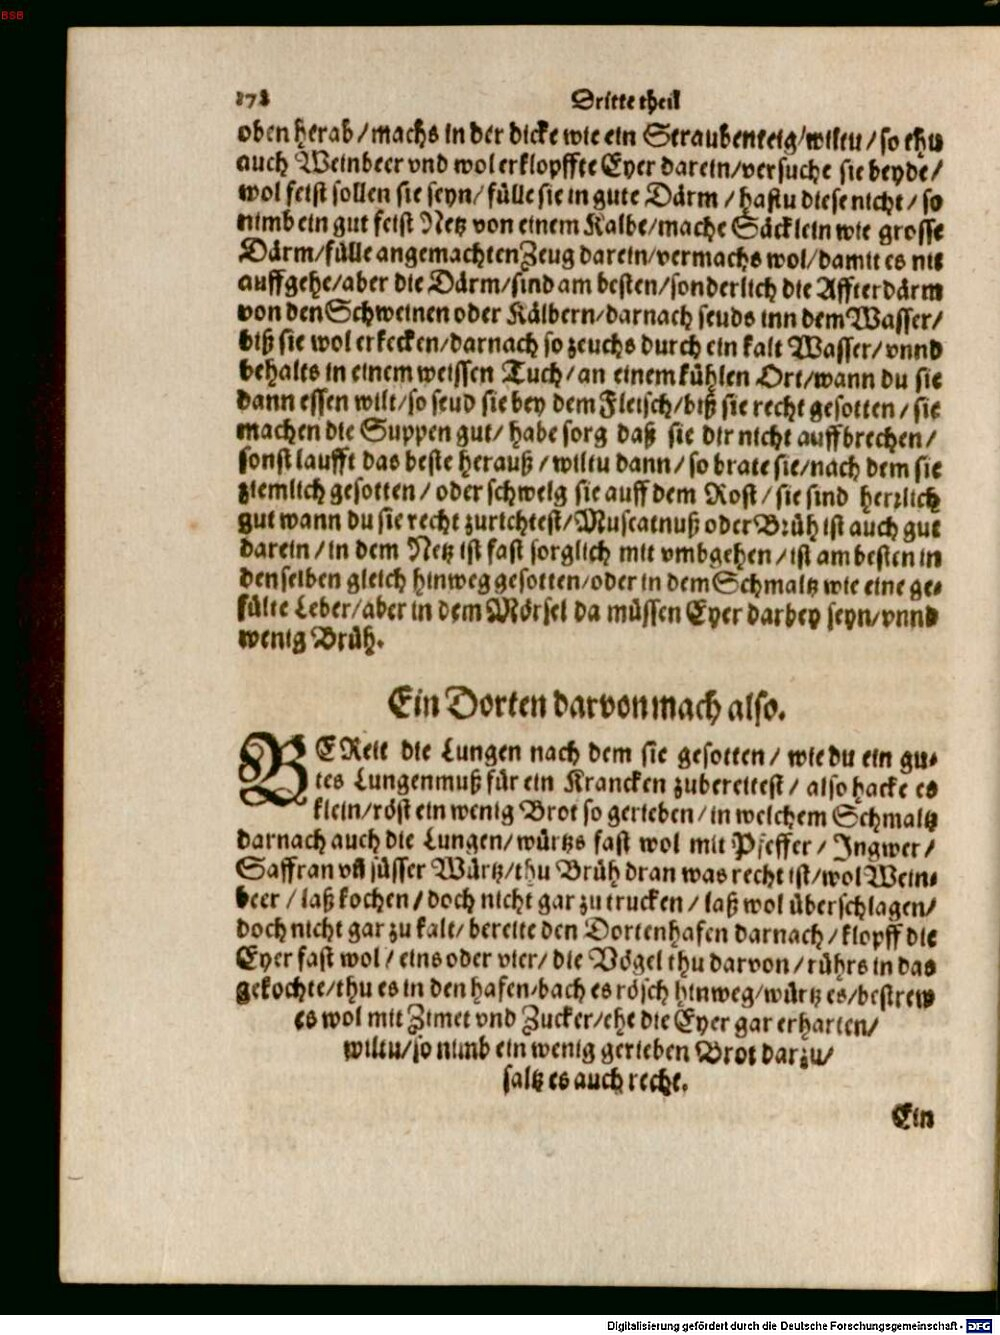 BSB
178 Dritte theil
oben herab/machs in der dicke wie ein Straubenteig/wiltu/so thu
auch Weinbeer vnd wol erklopffte Eyer darein/versuche sie beyde/
wol feist sollen sie seyn/ fülle sie in gute Därm / hastu diese nicht/ so
nimb ein gut feist Netz von einem Kalbe/mache Säcklein wie grosse
Därm/fülle angemachten Zeug darein/vermachs wol/damit es nit
auffgehe/aber die Därm/sind am besten/sonderlich die Affterdärm
von den Schweinen oder Kälbern/darnach seuds inn dem Wasser/
biß sie wol erkecken/darnach so zeuchs durch ein kalt Wasser/vnnd
behalts in einem weissen Tuch/an einem kühlen Ort/wann du sie
dann essen wilt/so seud sie bey dem Fleisch/biß sie recht gesotten/ sie
machen die Suppen gut/ habe sorg daß sie dir nicht auffbrechen/
sonst laufft das beste herauß /wiltu dann/so brate sie/nach dem sie
ziemlich gesotten/ oder schweig sie auff dem Rost/ sie sind herzlich
gut wann du sie recht zurichtest/Muscatnuß oder Brüh ist auch gut
darein/in dem Netz ist fast sorglich mit vmbgehen/ist am besten in
denselben gleich hinweg gesotten/oder in dem Schmaltz wie eine ge-
fülte Leber/aber in dem Mörsel da müssen Eyer darbey seyn/vnnd
wenig Brüh.
Ein Dorten darvon mach also.
BEReit die Lungen nach dem sie gesotten/ wie du ein gu-
tes Lungenmuß für ein Krancken zubereitest/ also hacke es
klein/röst ein wenig Brot so gerieben/in welchem Schmaltz
darnach auch die Lungen/würtzs fast wol mit Pfeffer/ Ingwer/
Saffran vñ süsser Würtz/thu Brüh dran was recht ist/wol Wein-
beer / laß kochen/doch nicht gar zu trucken/ laß wol überschlagen/
doch nicht gar zu kalt/ bereite den Dortenhafen darnach/klopff die
Eyer fast wol/ eins oder vier/ die Vögel thu darvon/rührs in das
gekochte/thu es in den hafen/bach es rösch hinweg/würtz es/bestrew
es wol mit Zimet vnd Zucker/ehe die Eyer gar erharten/
wiltu/so nimb ein wenig gerieben Brot darzu/
saltz es auch recht.
Ein
Digitalisierung gefördert durch die Deutsche Forschungsgemeinschaft - DFG